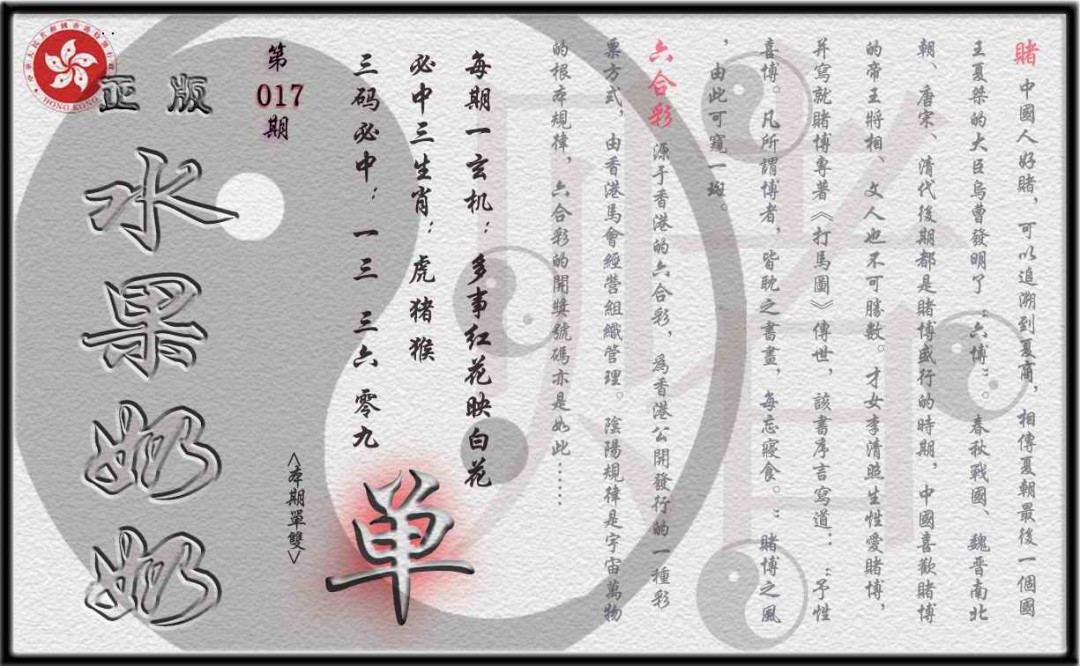 賭 中國人好賭，可以追溯到夏商，相傳夏朝最後一個國
王夏桀的大臣烏曹發明了“六博”。春秋戰國、魏晋南北
朝、唐宋、清代後期都是賭博盛行的時期，中國喜歡賭博
的帝王將相、文人也不可勝數。才女李清照生性愛賭博，
并寫就賭博專著《打馬圖》傳世，該書序言寫道：“予性
喜博。凡所謂博者，皆耽之書畫，每忘寢食。”賭博之風
，由此可窺一斑。
六合彩 源于香港的六合彩，爲香港公開發行的一種彩
票方式，由香港馬會經營組織管理。陰陽規律是宇宙萬物
的根本規律，六合彩的開獎號碼亦是如此……
每期一玄机：多事红花映白花
必中三生肖：虎猪猴
三码必中：一三 三六 零九
单
<本期單雙>
第
017
期
正版
水果奶奶
HONG KONG